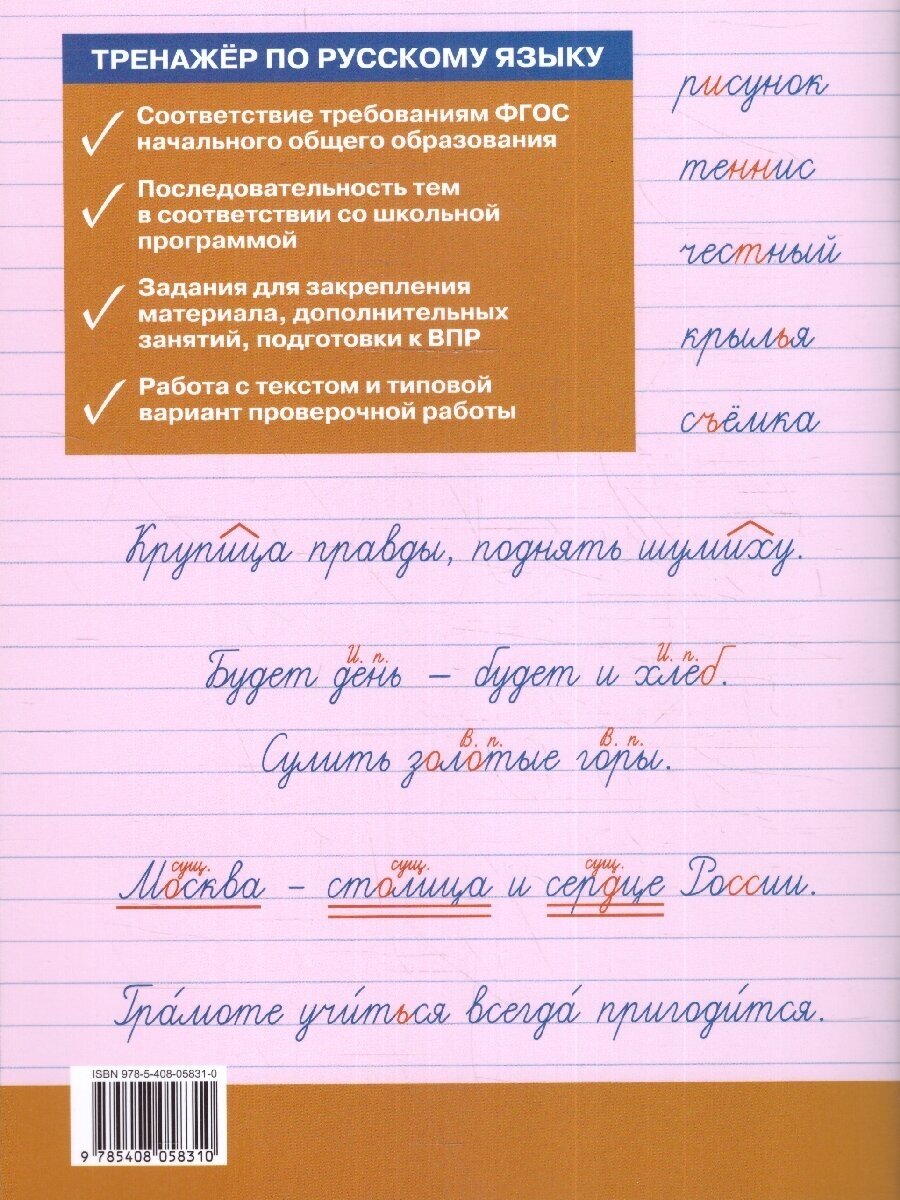 ТРЕНАЖЁР ПО РУССКОМУ ЯЗЫКУ
Соответствие требованиям ФГОС
начального общего образования
Последовательность тем
в соответствии со школьной
программой
Задания для закрепления
материала, дополнительных
занятий, подготовки к ВПР
Работа с текстом и типовой
вариант проверочной работы
рисунок
теннис
честный
крылья
съёмка
Крупица правды, поднять шумиху.
И. п. И. п.
Будет день – будет и хлеб.
В. п. В. п.
Сулить золотые горы.
сущ. сущ. сущ.
Москва – столица и сердце России.
Гра́моте учи́ться всегда́ пригоди́тся.
ISBN 978-5-408-05831-0
9 785408 058310